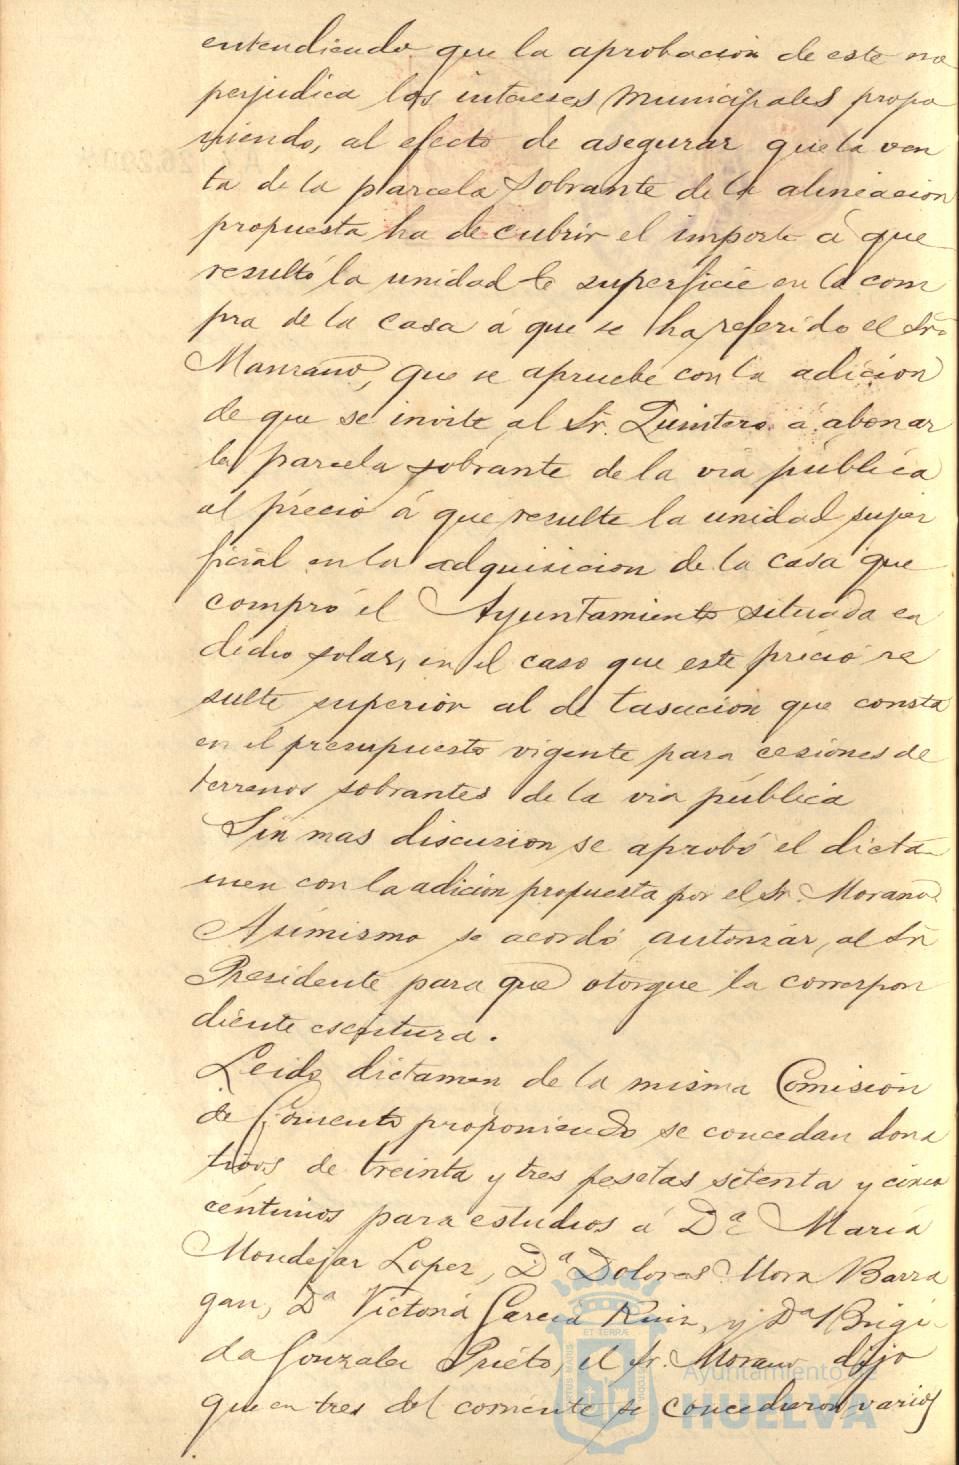 entendiendo que la aprobación de este no
perjudica los intereses municipales propo
niendo, al efecto de asegurar que la ven
ta de la parcela sobrante de la alineación
propuesta ha de cubrir el importe á que
resultó la unidad de superficie en la com
pra de la casa á que se ha referido el Sr.
Manzano, que se apruebe con la adición
de que se invite al Sr. Quintero á abonar
la parcela sobrante de la via pública
al précio á que resulte la unidad super
ficial en la adquisicion de la casa que
compró el Ayuntamiento situada en
dicho solar, en el caso que este précio re
sulte superior al de tasación que consta
en el presupuesto vigente para cesiones de
terrenos sobrantes de la via pública
Sin mas discusion se aprobó el dicta
men con la adición propuesta por el Sr.
Asimismo se acordó autorizar al Sr.
Presidente para que otorgue la correspon
diente escritura.
Leido dictamen de la misma Comisión
de Fomento proponiendo se concedan dona
tivos de treinta y tres pesetas setenta y cinco
céntimos para estudios á Dª Maria
Mondejar Lopez, Dª Dolores Mora Barra
gan, Dª Victoria Garcia Ruiz, y Dª Brigi
da Gonzalez Prieto, el Sr. Morano dijo
que en tres del corriente se concedieron varios
Ayuntamiento de
HUELVA
ET TERRÆ
PORTUS MARIS